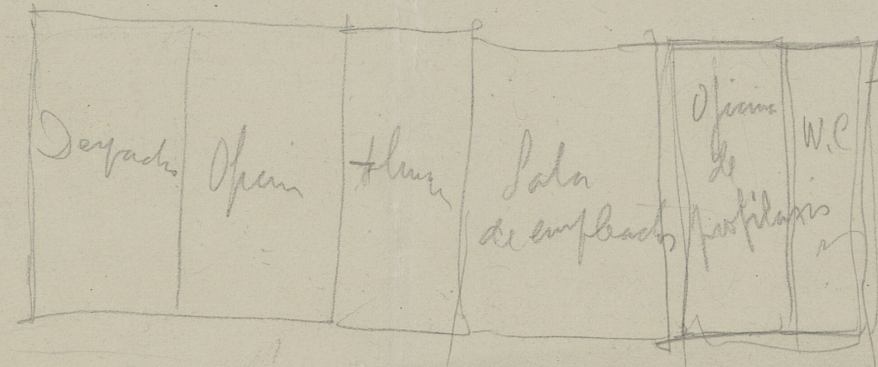 Despacho
Oficina
Sala
de empleados
Oficina
de
profilaxis
W.C